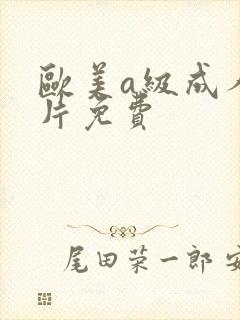 歐美a級成人
片免費
尾田荣一郎 安